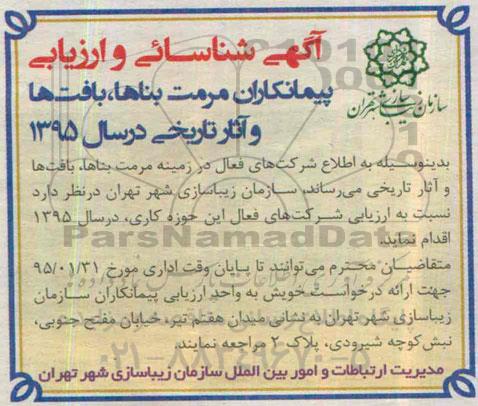 آگهی شناسائی و ارزیابی
پیمانکاران مرمت بناها، بافت‌ها
و آثار تاریخی درسال ۱۳۹۵
سازمان زیباسازی شهر تهران
بدینوسیله به اطلاع شرکت‌های فعال در زمینه مرمت بناها، بافت‌ها
و آثار تاریخی می‌رساند، سازمان زیباسازی شهر تهران درنظر دارد
نسبت به ارزیابی شرکت‌های فعال این حوزه کاری، درسال ۱۳۹۵
اقدام نماید.
متقاضیان محترم می‌توانند تا پایان وقت اداری مورخ ۹۵/۰۱/۳۱
جهت ارائه درخواست خویش به واحد ارزیابی پیمانکاران سازمان
زیباسازی شهر تهران به نشانی میدان هفتم تیر، خیابان مفتح جنوبی،
نبش کوچه شیرودی، پلاک ۲ مراجعه نمایند.
مدیریت ارتباطات و امور بین الملل سازمان زیباسازی شهر تهران
ParsNamadData
۰۲۱-۸۸۳۴۹۶۷۰-۵